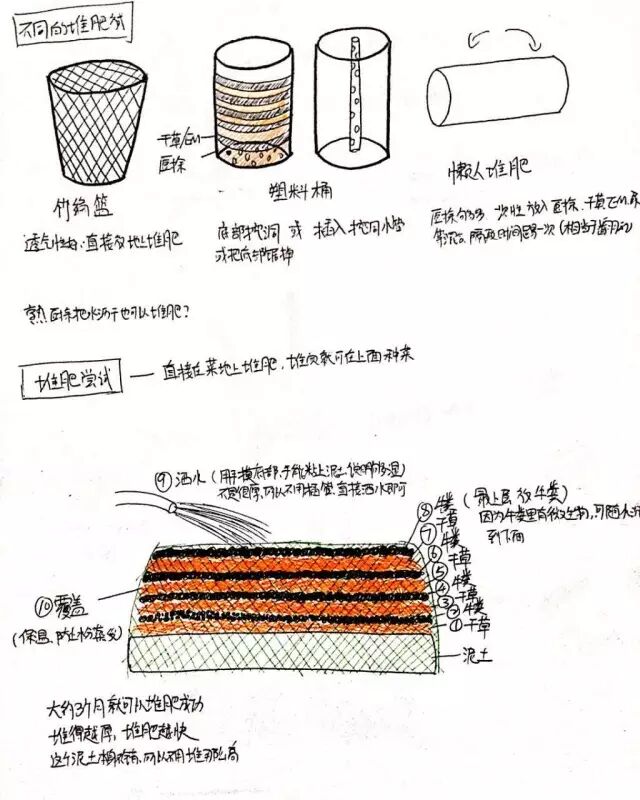 不同的堆肥法
干草/
厨余
竹编篮
塑料桶
懒人堆肥
透气性好,直接放地上堆肥
底部挖洞 或 插入挖洞水管
或把底部锯掉
厨余 一次性放入厨余、干草
隔段时间 一次(相当于翻
熟厨余把水沥干也可以堆肥?
堆肥尝试 — 直接在菜地上堆肥,堆完就可在上面种菜
⑨洒水(用手摸底部,手能粘上泥土,说明够湿)
不是很厚,可以不用插管,直接洒水即可
⑧牛粪(最上层放牛粪)
因为牛粪里有微生物,可随水
到下面
⑦干草
⑥牛粪
⑤干草
④牛粪
③干草
②牛粪
①干草
泥土
⑩覆盖
(保温、防止水分蒸发)
大约3个月就可以堆肥成功
堆得越厚,堆肥越快
这个泥土 ,可以不用堆那么高